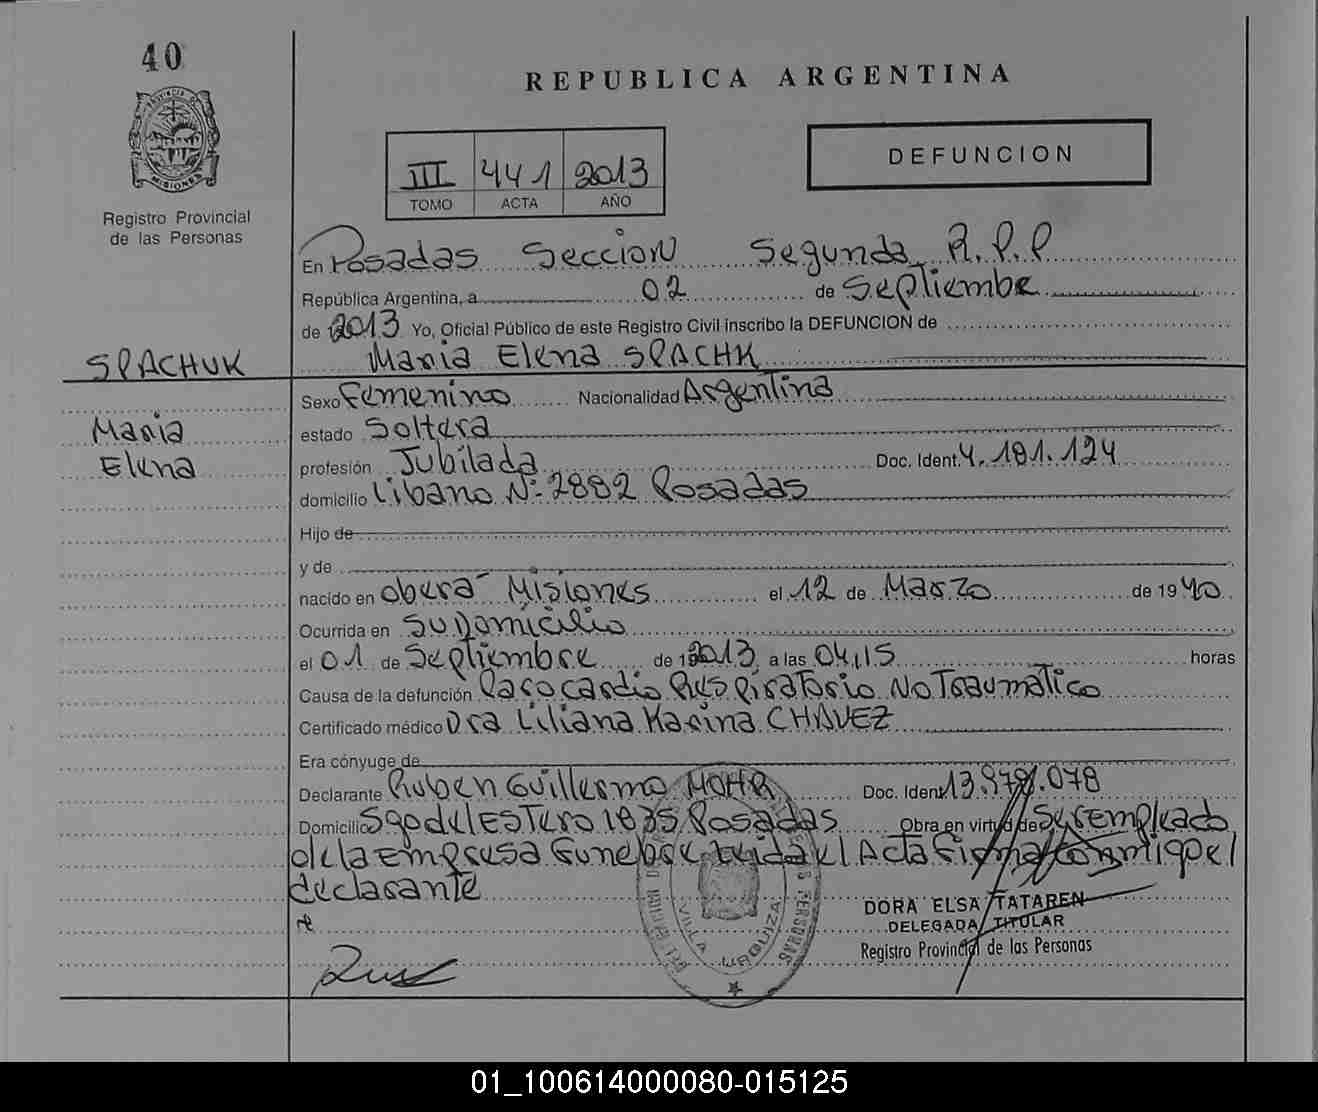 40
PROVINCIA DE
MISIONES
Registro Provincial
de las Personas
REPUBLICA ARGENTINA
III 441 2013
TOMO ACTA AÑO
DEFUNCION
En Posadas Seccion Segunda R.P.P
República Argentina, a 02 de Septiembre
de 2013 Yo, Oficial Público de este Registro Civil inscribo la DEFUNCION de
SPACHUK Maria Elena SPACHK
Sexo Femenino Nacionalidad Argentina
Maria estado Soltera
Elena profesión Jubilada Doc. Ident. 4.181.124
domicilio Libano Nº 2882 Posadas
Hijo de
y de
nacido en Oberá Misiones el 12 de Marzo de 1940
Ocurrida en Su Domicilio
el 01 de Septiembre de 2013 a las 04,15 horas
Causa de la defunción Paro cardio Respiratorio No Traumatico
Certificado médico Dra Liliana Karina CHAVEZ
Era cónyuge de
Declarante Ruben Guillermo MOHR Doc. Ident. 13.978.078
Domicilio Sgo del Estero 1835 Posadas Obra en virtud de Ser Empleado
de la Empresa Funebre Leida el Acta Firma Conmigo el
declarante
DORA ELSA TATAREN
DELEGADA TITULAR
Registro Provincial de las Personas
VILLA URQUIZA
01_100614000080-015125